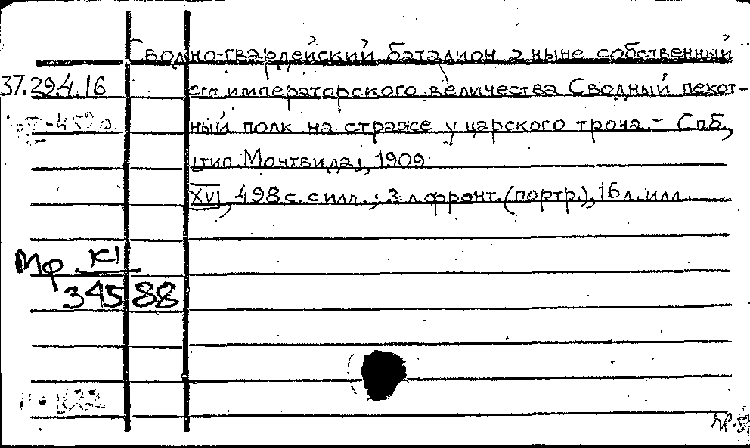 Сводно-гвардейский батальон а ныне собственный
37.29.4.16 его императорского величества Сводный пехот-
ный полк на страже у царского трона. - Спб.,
тип. Монтвида, 1909
XVI, 498 с. с илл.; 3 л. фронт. (портр.), 16 л. илл.
Мф KI
34588